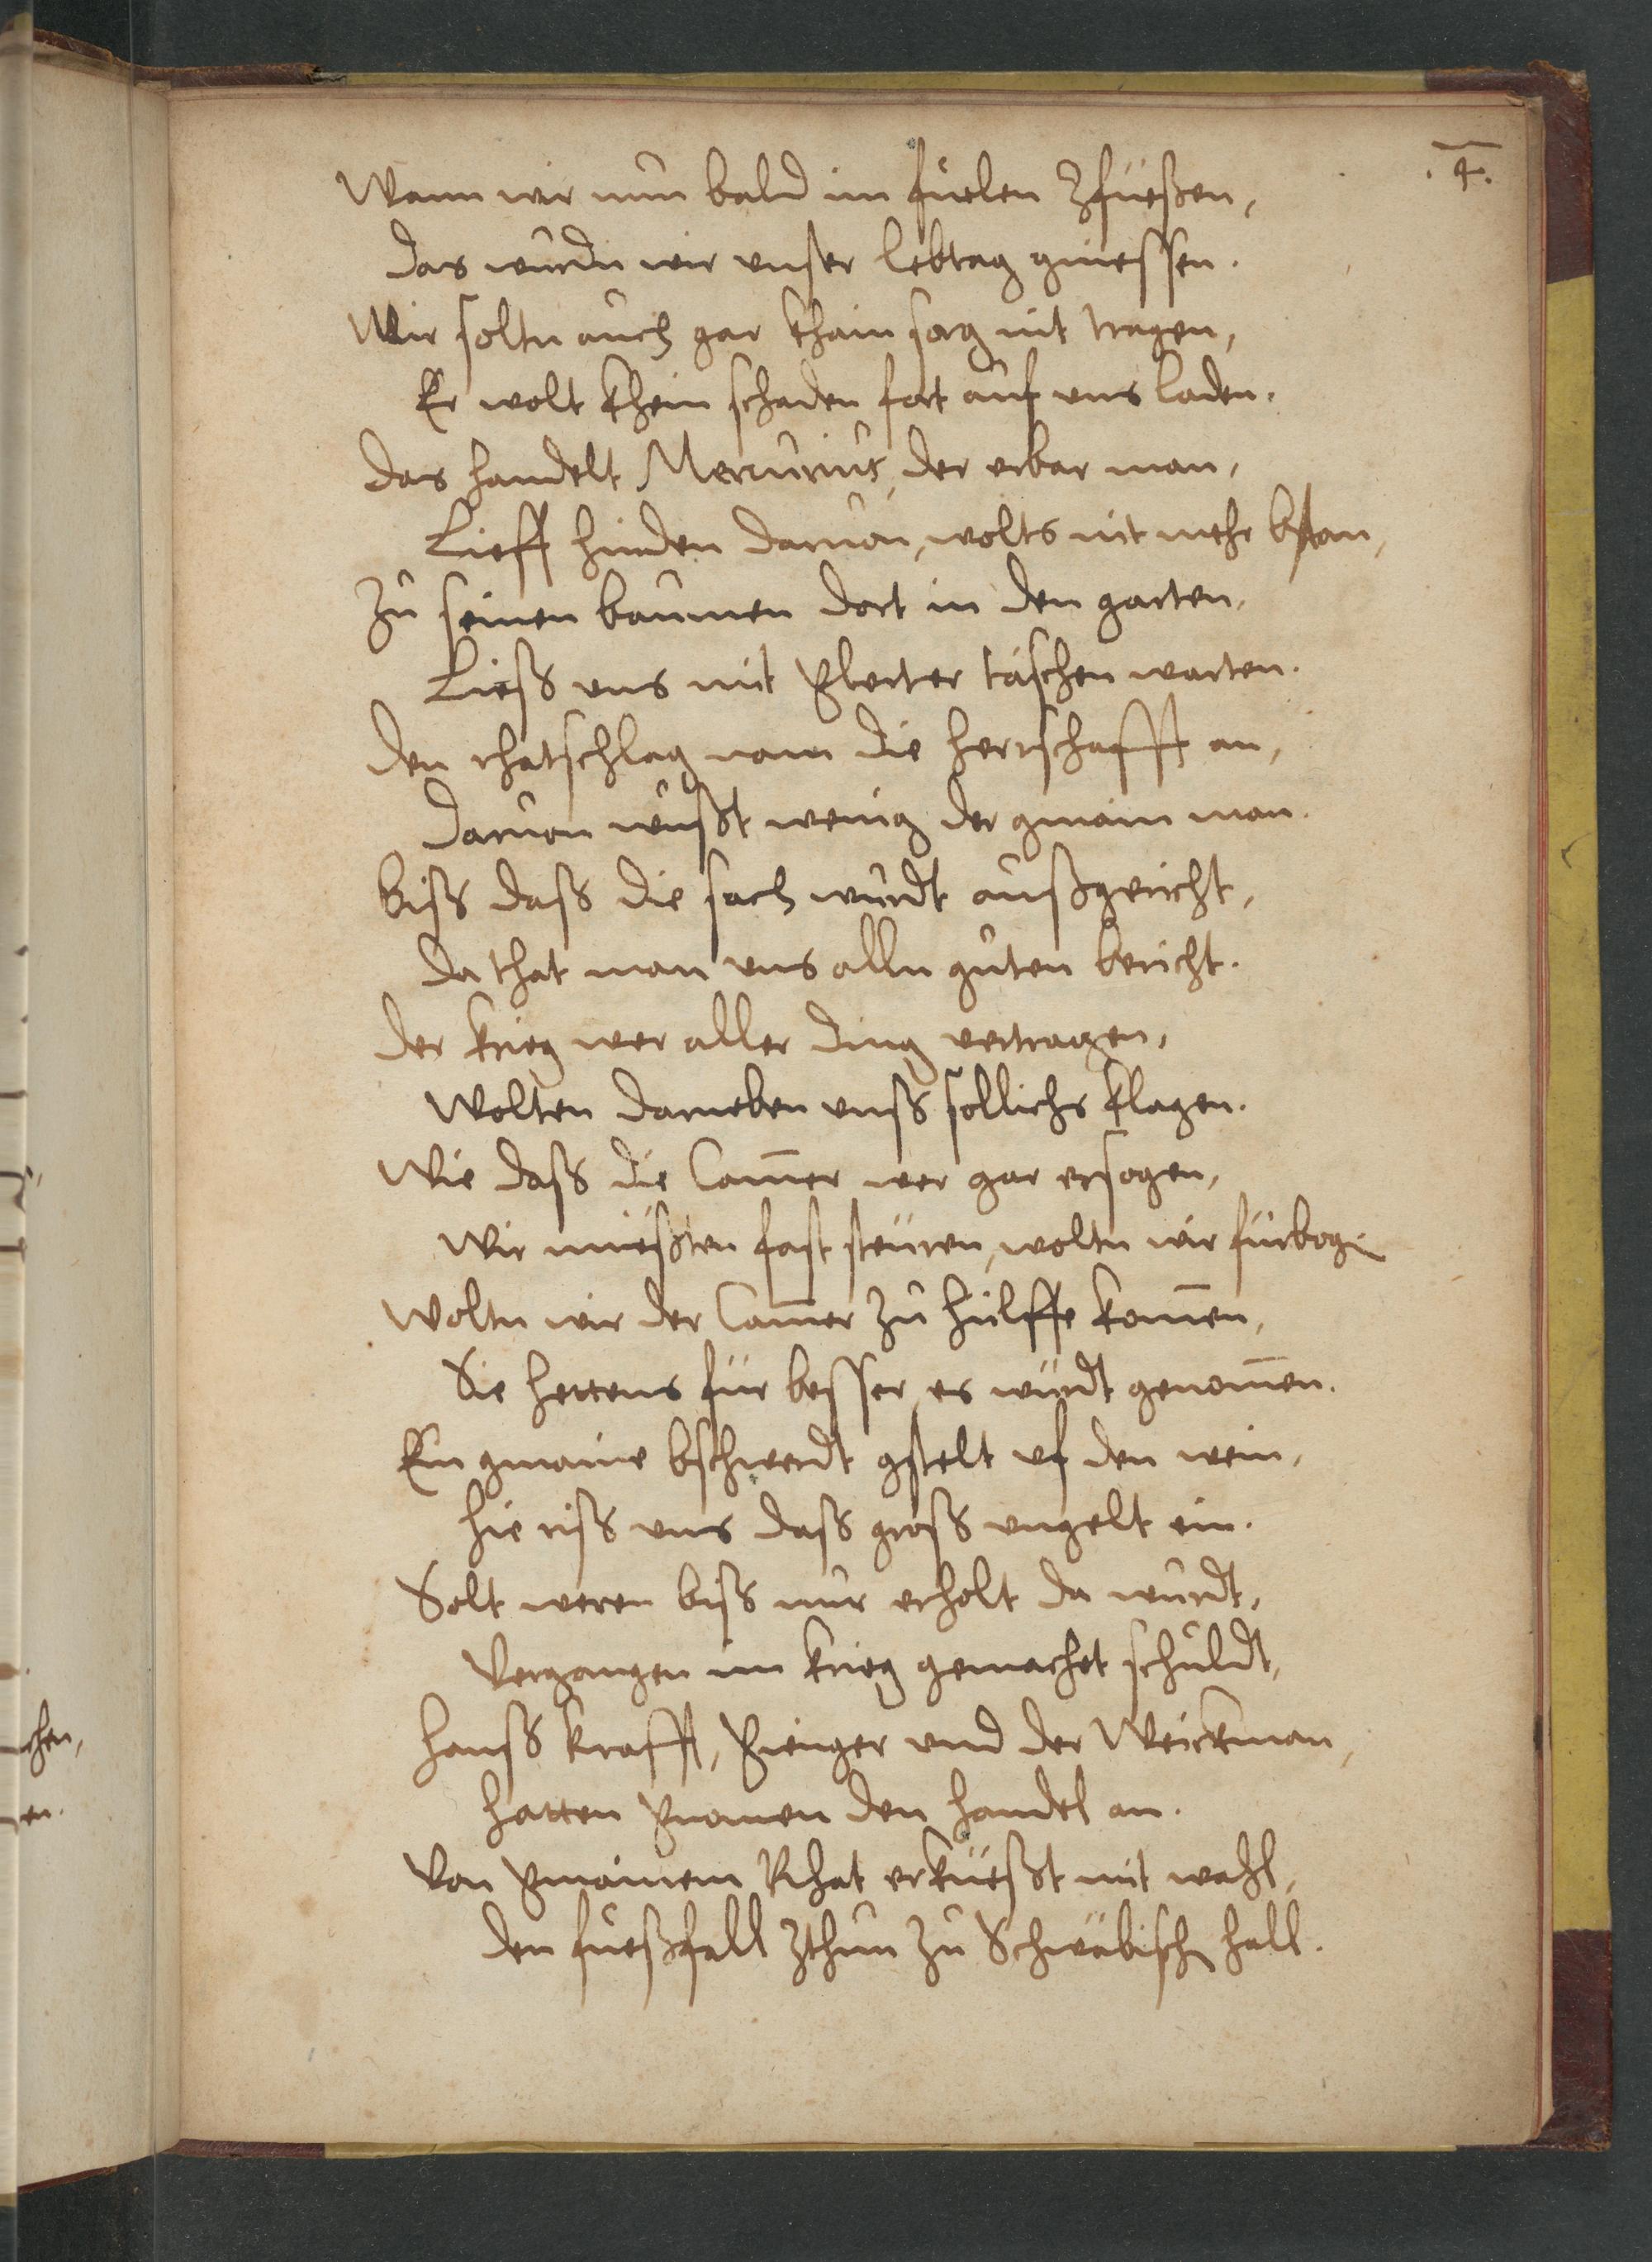 .4.
Wann wir nun bald im fielen Zfüeßen,
das wurdn wir vnser lebtag gniessen.
Wir soltn auch gar khain sorg nit tragen,
Er wolt khein schaden fort auf vns laden.
das handelt Mercurius, der erbar man,
Lieff hinden daruon, wolts nit mehr bstan,
Zu seinen baumen dort in den garten,
Liess vns mit glerter täschen warten.
den rhatschlag nam die herrschafft an,
daruon wusst wenig der gmain man.
biss dass die sach wurdt aussgericht,
da that man vns alln guten bericht.
der krieg wer aller ding vertragen,
Wolten darneben vnss sollichs klagen.
Wie dass die Cam̄er wer gar ersogen,
Wir müesten fast steüren, woltn wir fürbog
Woltn wir der Cam̄er zu hülffe kom̄en,
Sie hettens für besser, es würdt genom̄en.
Ein gmaine bschwerdt gstelt vf den wein,
hie riss vns dass gross vngelt ein.
Solt weren biss nur erholt da wurdt,
Vergangen im krieg gemachet schuldt,
hanss krafft, Ehinger vnd der Weickman,
hatten gnomen den handel an.
Von gmainem Rhat erküesst mit wahl,
den fuessfall zthun zu Schwäbisch hall.
chen,
en.